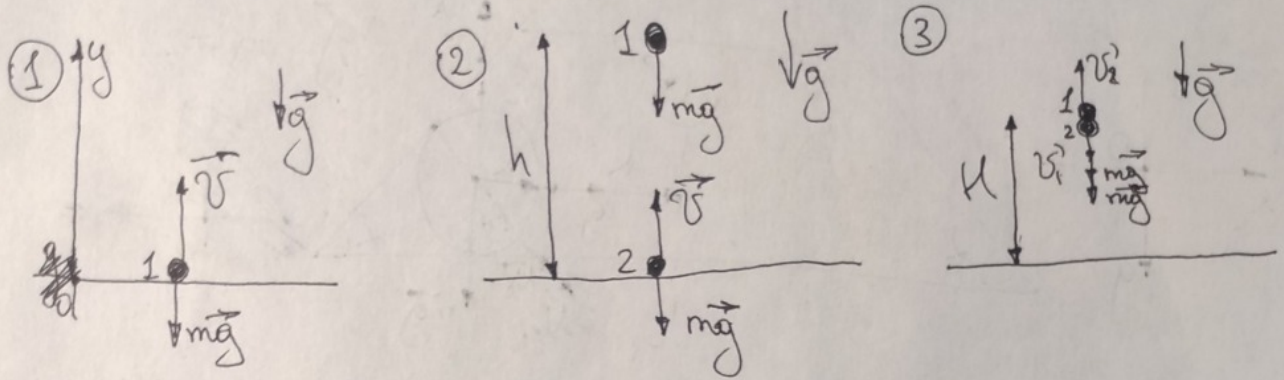 1 y g⃗ v⃗ 1 mg⃗ 0
2 1 mg⃗ h g⃗ v⃗ 2 mg⃗
3 v⃗₂ g⃗ 1 2 H v⃗₁ mg⃗ mg⃗